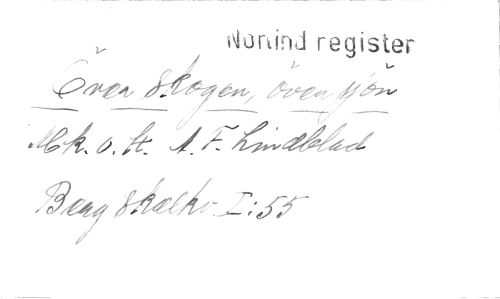 Nonind register
Över skogen, över sjön
Mk. o. st. A. F. Lindblad
Berg Skolkv. I:55